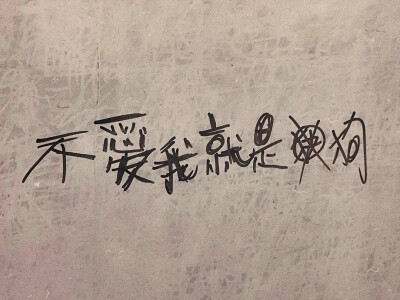 不愛我就是狗